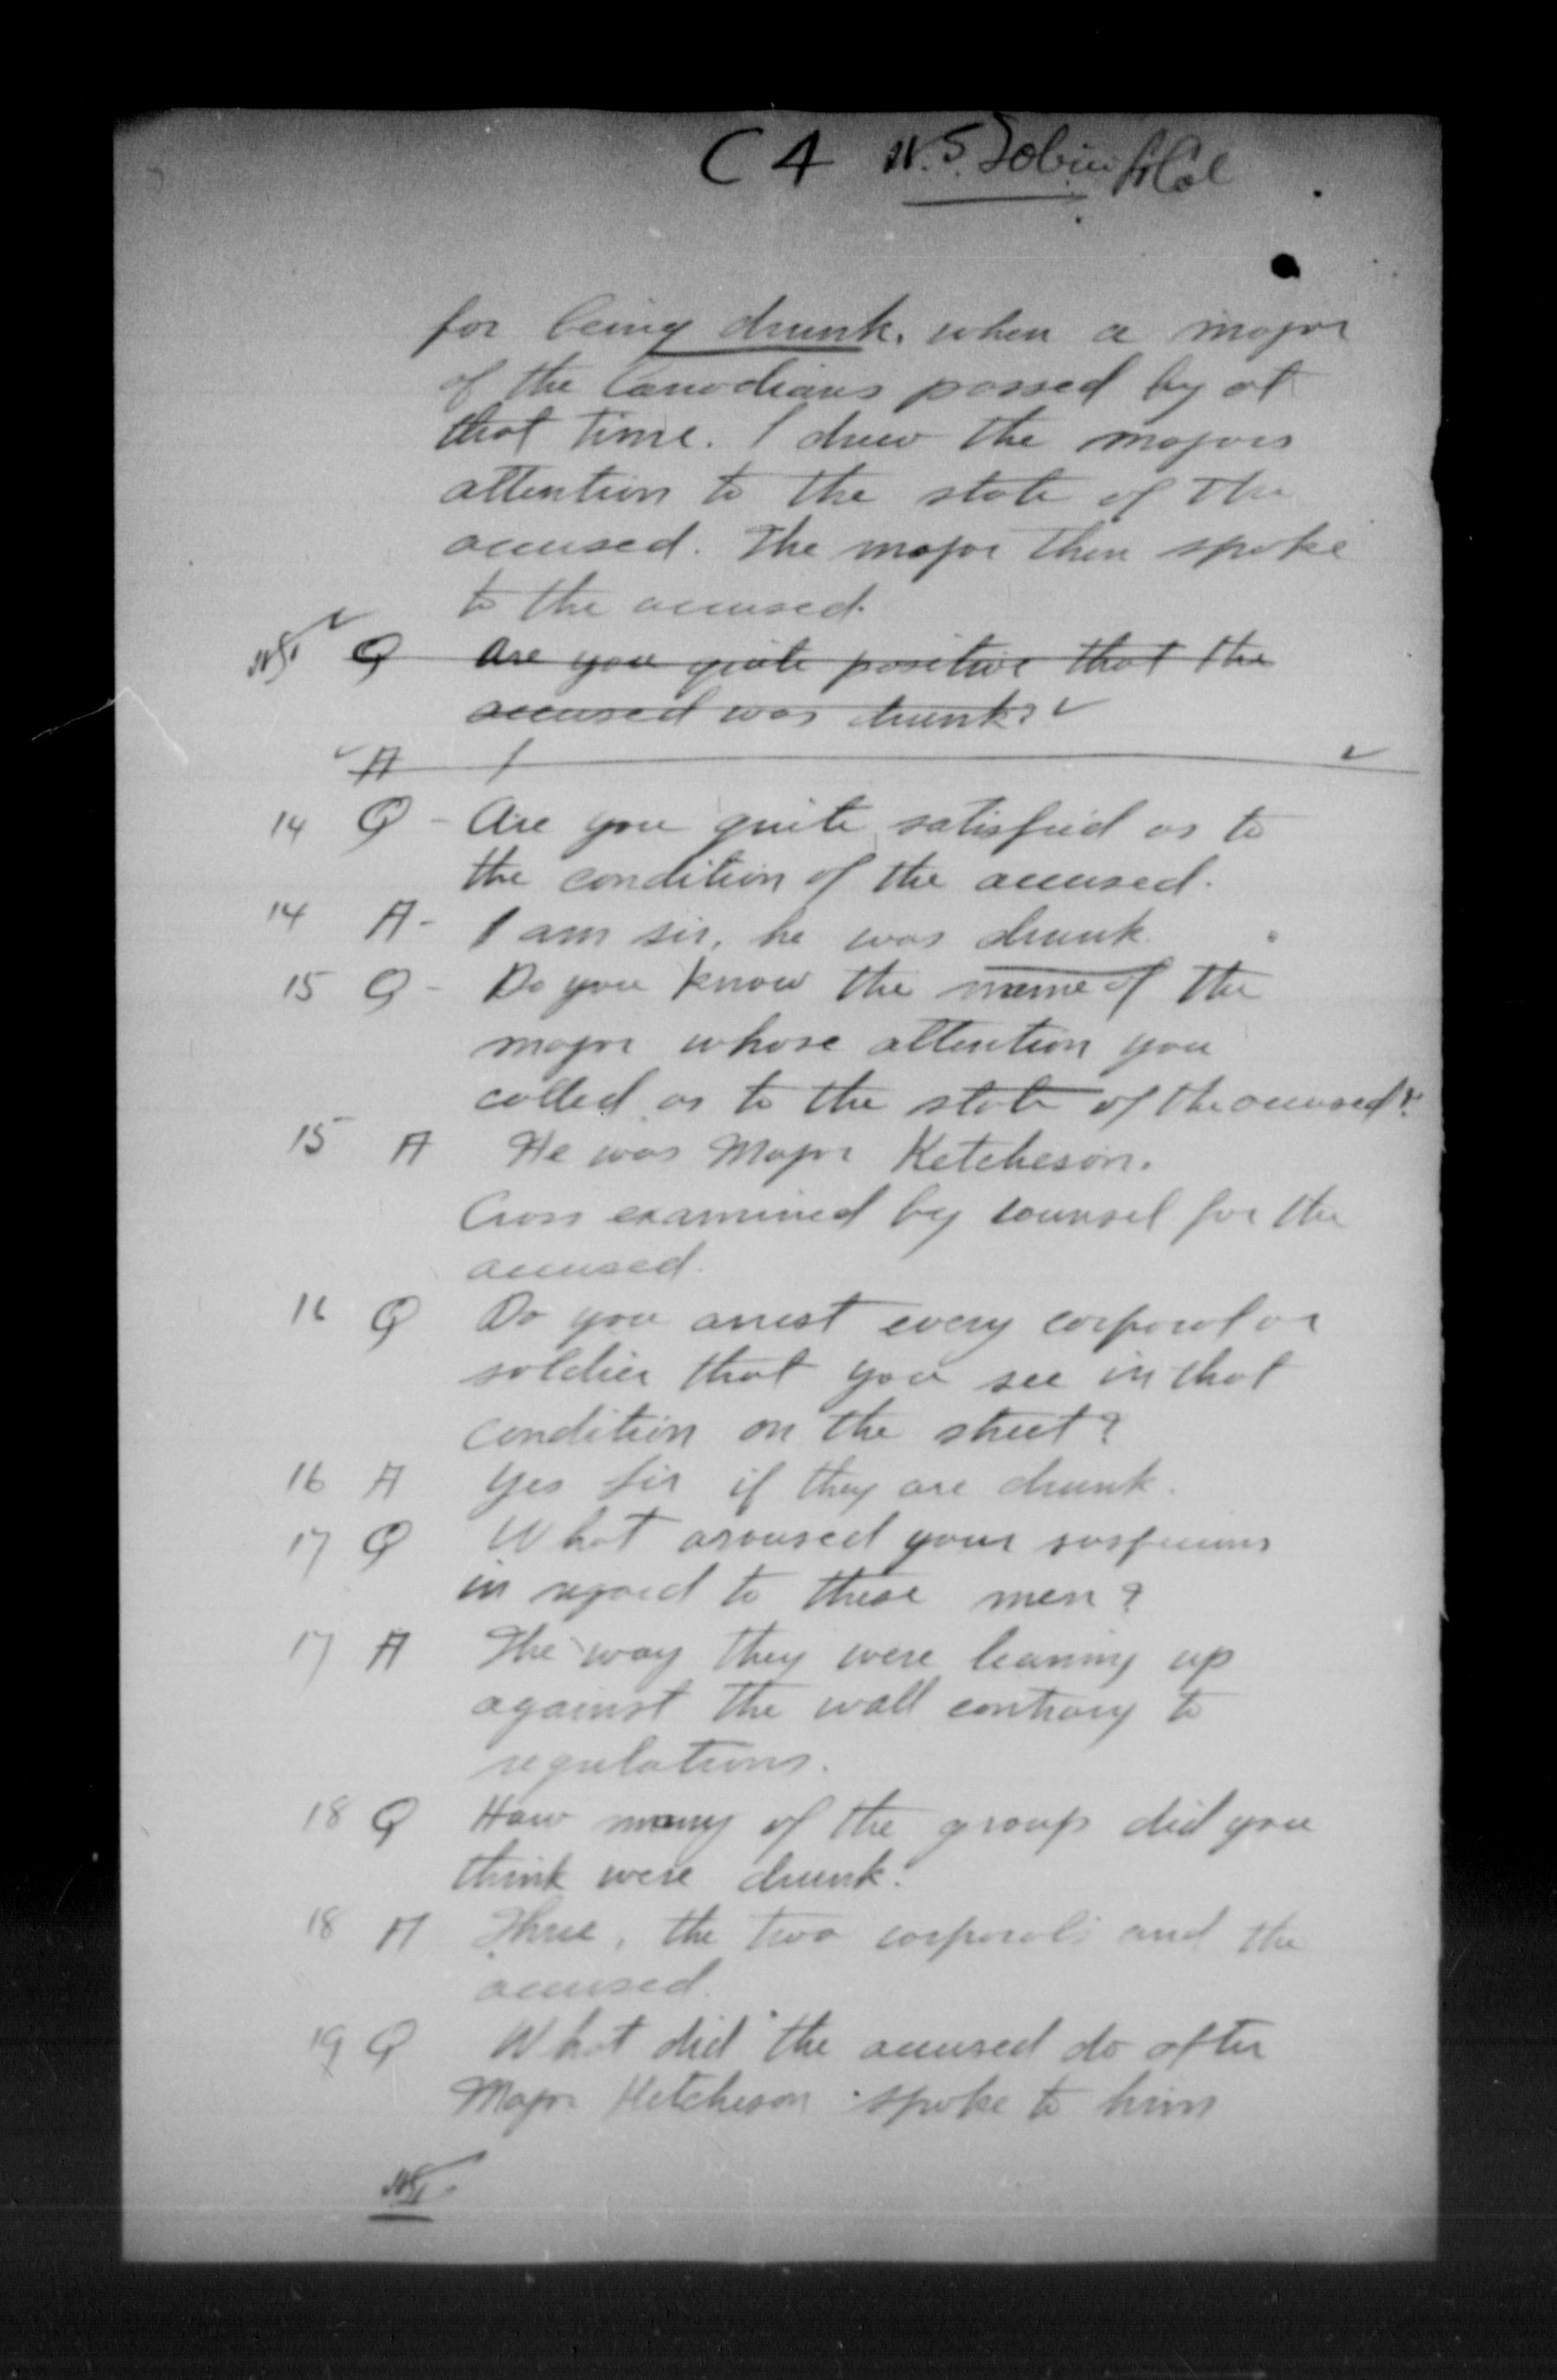 C 4 W.S. Tobin Lt Col
for being drunk. when a major
of the Canadians passed by at
that time. I drew the majors
attention to the state of the
accused. The major then spoke
to the accused.
WST Q Are you quite positive that the
accused was drunk?
A I
14 Q - Are you quite satisfied as to
the condition of the accused.
14 A - I am sir, he was drunk.
15 Q - Do you know the name of the
major whose attention you
called as to the state of the accused?
15 A He was Major Ketcheson.
Cross examined by counsel for the
accused.
16 Q Do you arrest every corporal or
soldier that you see in that
condition on the street?
16 A Yes Sir if they are drunk.
17 Q What aroused your suspicions
in regard to these men?
17 A The way they were leaning up
against the wall contrary to
regulations.
18 Q How many of the group did you
think were drunk?
18 A Three, the two corporals and the
accused.
19 Q What did the accused do after
Major Ketcheson spoke to him
WST